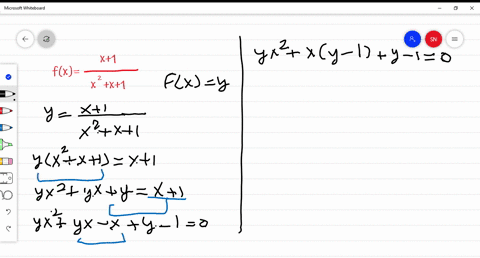 Microsoft Whiteboard
f(x) = x+1 / x²+x+1
F(x) = y
y = x+1 / x²+x+1
y(x²+x+1) = x+1
yx²+yx+y = x+1
yx²+yx-x+y-1=0
yx²+x(y-1)+y-1=0
SN